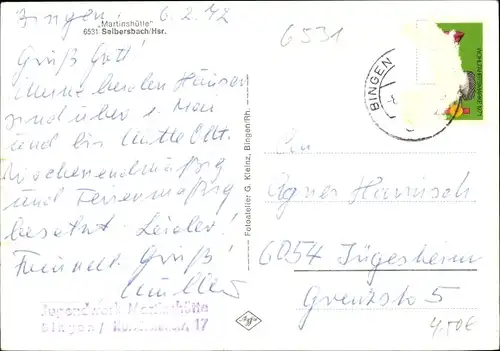 Bingen, 6.2.72
„Martinshütte"
6531 Seibersbach/Hsr.
Grüß Gott!
Meine beiden Häuser
sind über 1. Mai
und bis Mitte Okt.
wochenendmäßig
und Ferienmäßig
besetzt. Leider!
Freundl. Grüß!
Jugendwerk Martinshütte
Bingen/ 17
Fotoatelier G. Kleinz, Bingen/Rh.
6531
BINGEN
WOHLFAHRTSMARKE 1971
An
Agnes Harnisch
6054 Jügesheim
Grenzstr 5
4,50€